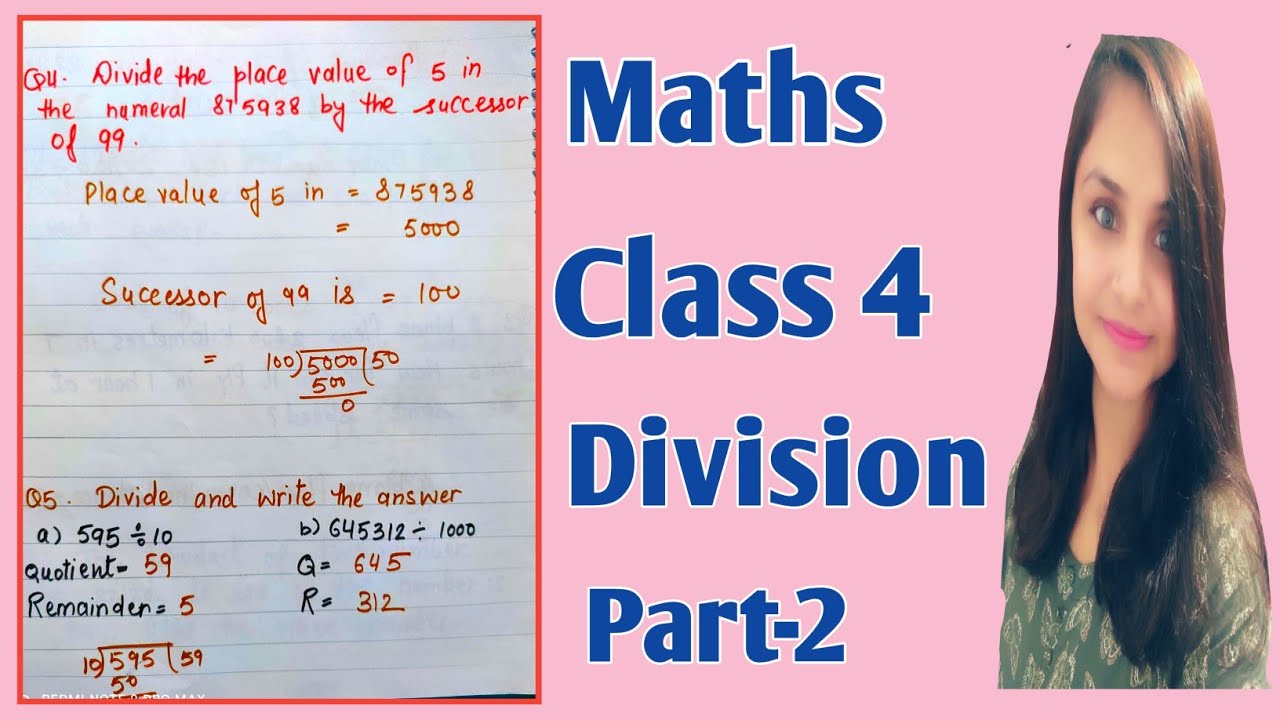 Q4. Divide the place value of 5 in
the numeral 875938 by the successor
of 99.
Place value of 5 in = 875938
= 5000
Sucessor of 99 is = 100
= 100)5000(50
500
0
Q5. Divide and write the answer
a) 595 ÷ 10 b) 645312 ÷ 1000
Quotient= 59 Q= 645
Remainder= 5 R= 312
10)595(59
50
Maths
Class 4
Division
Part-2